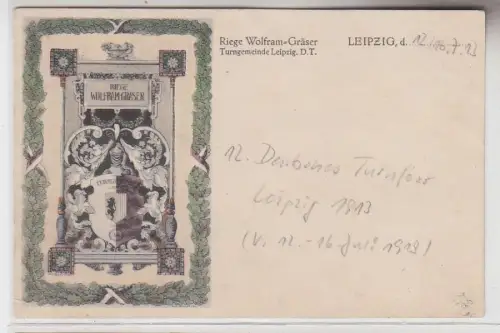 Riege Wolfram-Gräser
Turngemeinde Leipzig. D.T.
LEIPZIG, d. 12/16.7.13
RIEGE
WOLFRAM-GRÄSER
12. Deutsches Turnfest
Leipzig 1913
(v. 12.-16 Juli 1913)